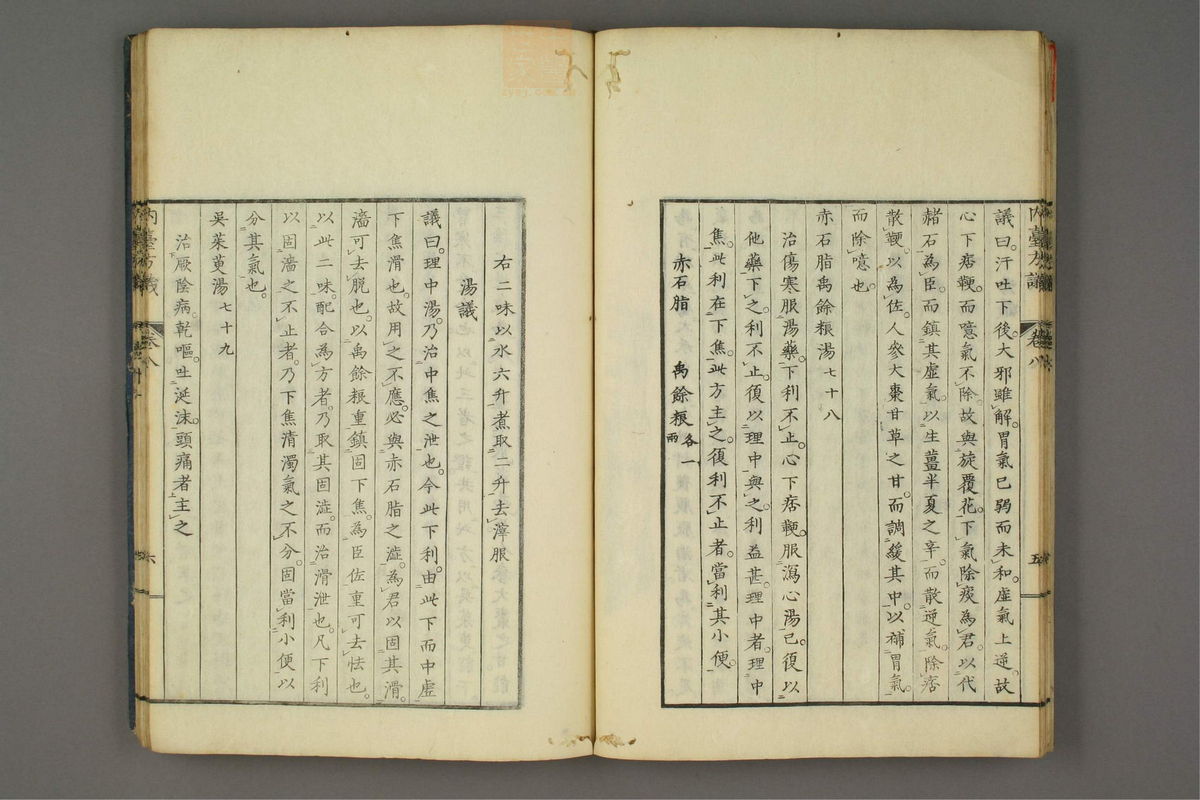 議曰汗吐下後大邪雖解胃氣已弱而未和虛氣上逆故
心下痞鞕而噫氣不除故與旋覆花下氣除痰為君以代
赭石為臣而鎮其虛氣以生薑半夏之辛而散逆氣除痞
散鞕以為佐人參大棗甘草之甘而調緩其中以補胃氣
而除噫也
赤石脂禹餘粮湯七十八
治傷寒服湯藥下利不止心下痞鞕服瀉心湯已復以
他藥下之利不止復以理中與之利益甚理中者理中
焦此利在下焦此方主之復利不止者當利其小便
赤石脂 禹餘粮各一兩
內臺方議 卷八 五
右二味以水六升煮取二升去滓服
湯議
議曰理中湯乃治中焦之泄也今此下利由此下而中虛
下焦滑也故用之不應必與赤石脂之澁為君以固其滑
濇可去脫也以禹餘粮重鎮固下焦為臣佐重可去怯也
以此二味配合為方者乃取其固澁而治滑泄也凡下利
以固濇之不止者乃下焦清濁氣之不分固當利小便以
分其氣也
吳茱萸湯七十九
治厥陰病乾嘔吐涎沫頭痛者主之
內臺方議 卷八 六